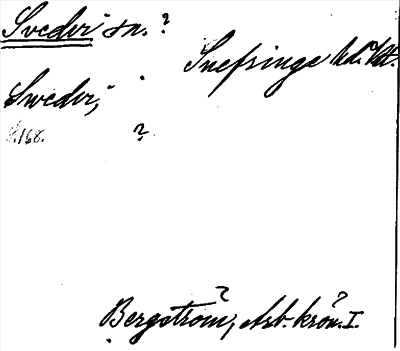 Svedvi sn. ?
Snefringe hd. Vtl.
Swedvi,
S. 168. ?
Bergström, Arb. krön. I.